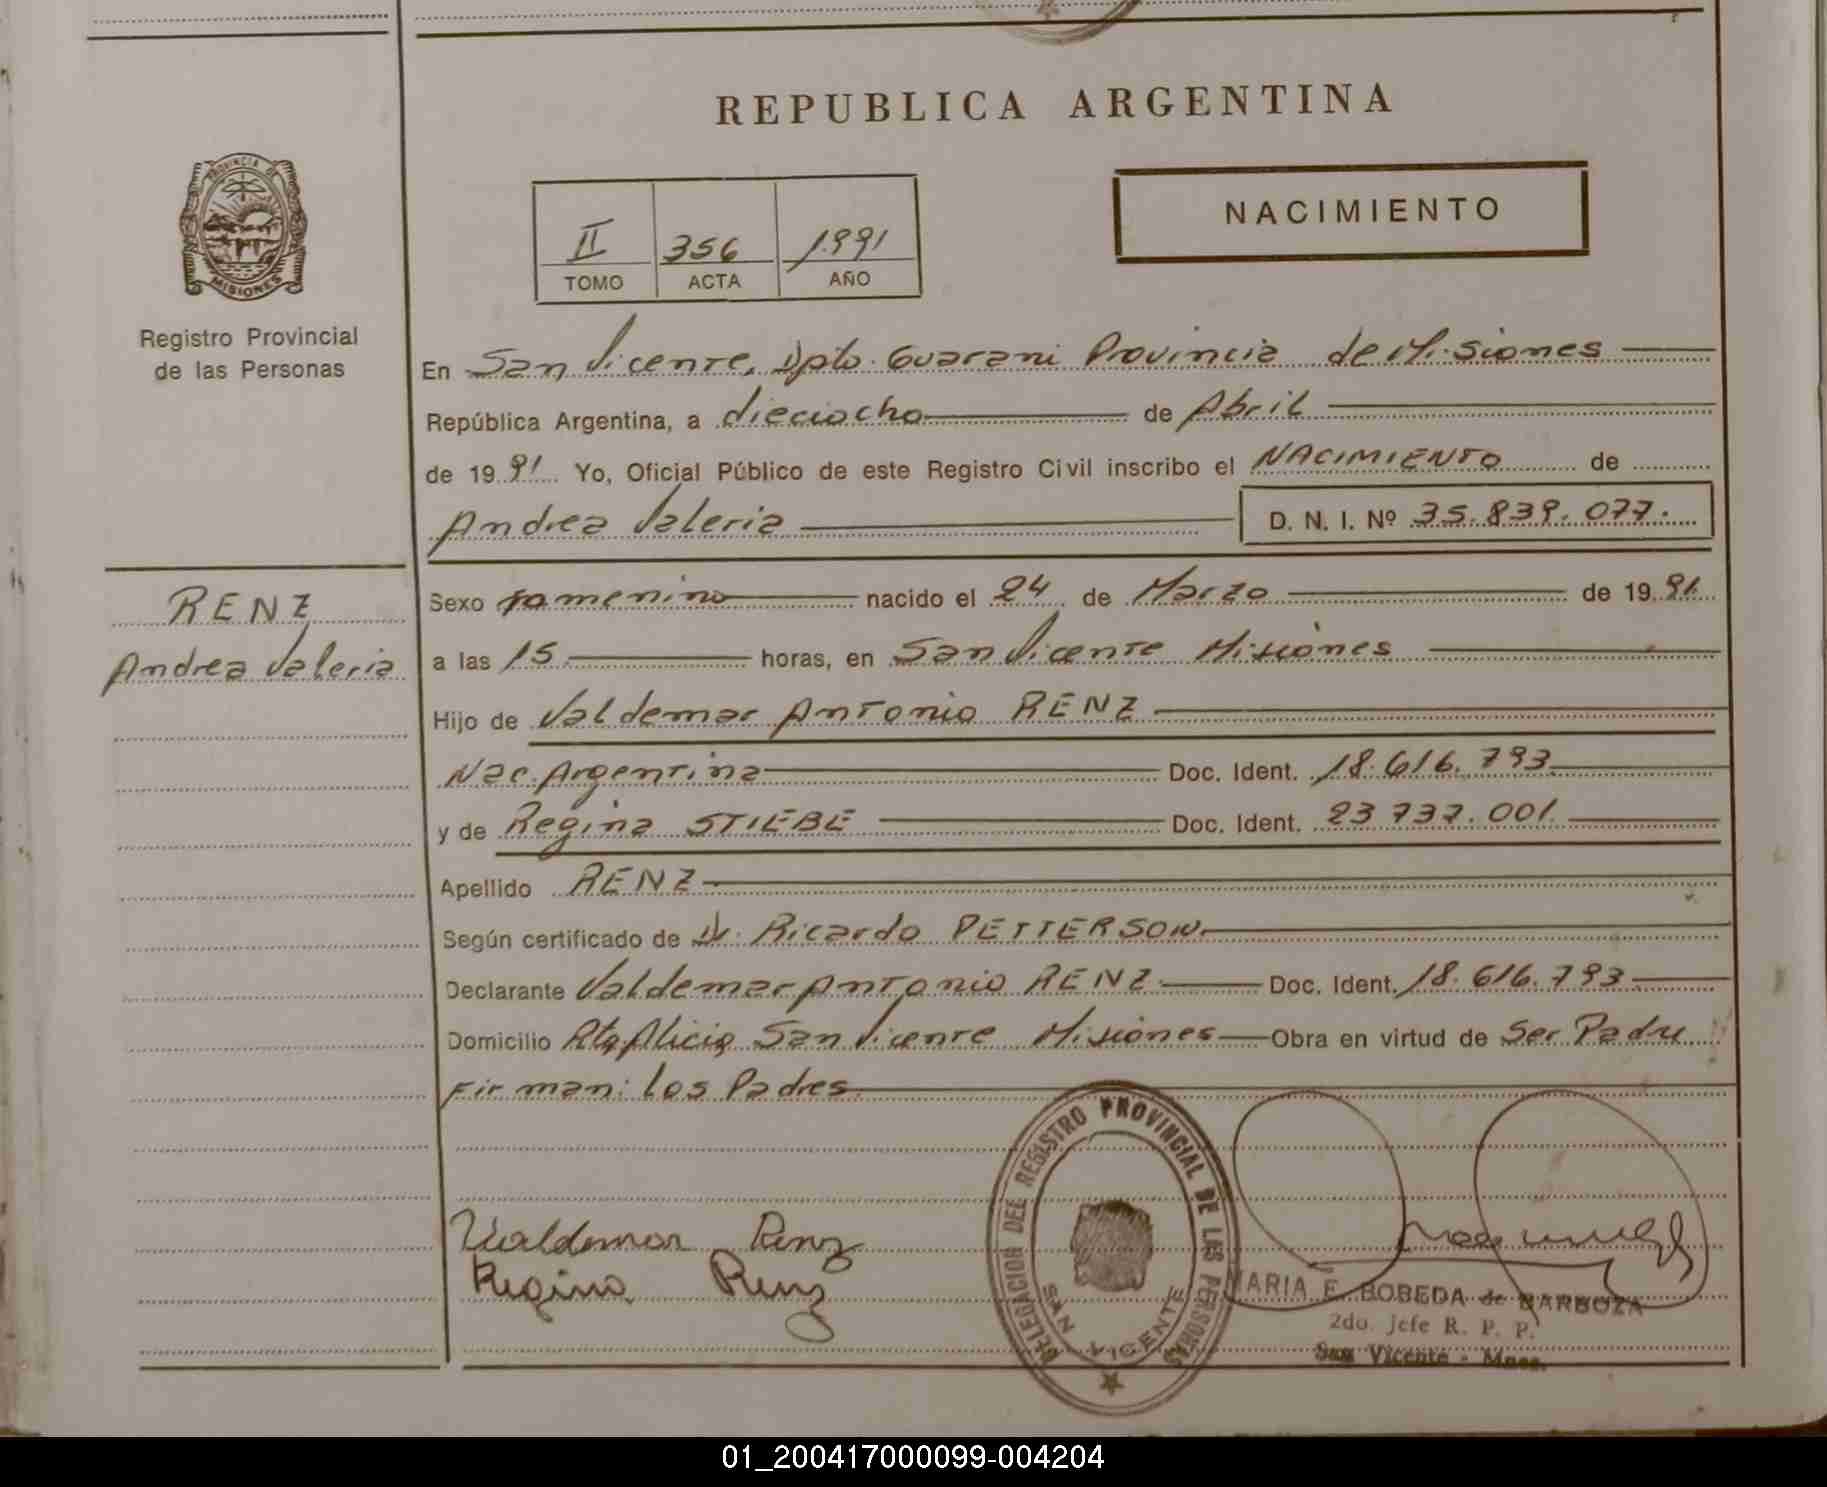 REPUBLICA ARGENTINA
PROVINCIA DE
MISIONES
Registro Provincial
de las Personas
NACIMIENTO
II 356 1991
TOMO ACTA AÑO
En San Vicente, Dpto. Guarani Provincia de Misiones
República Argentina, a dieciocho de Abril
de 1991 Yo, Oficial Público de este Registro Civil inscribo el NACIMIENTO de
Andrea Valeria D. N. I. Nº 35.839.077.
RENZ
Andrea Valeria
Sexo femenino nacido el 24 de Marzo de 1991.
a las 15 horas, en San Vicente Misiones
Hijo de Valdemar Antonio RENZ
Nac. Argentina Doc. Ident. 18.616.793
y de Regina STIEBE Doc. Ident. 23 737.001.
Apellido RENZ
Según certificado de Dr. Ricardo PETTERSON.
Declarante Valdemar Antonio RENZ Doc. Ident. 18.616.793
Domicilio Pto Alicia San Vicente Misiones Obra en virtud de Ser Padre
Firman: Los Padres
Valdemar Renz
Regina Renz
DELEGACION DEL REGISTRO PROVINCIAL DE LAS PERSONAS
SAN VICENTE
MARIA E. BOBEDA de BARBOZA
2do. Jefe R. P. P.
San Vicente - Mnes.
01_200417000099-004204